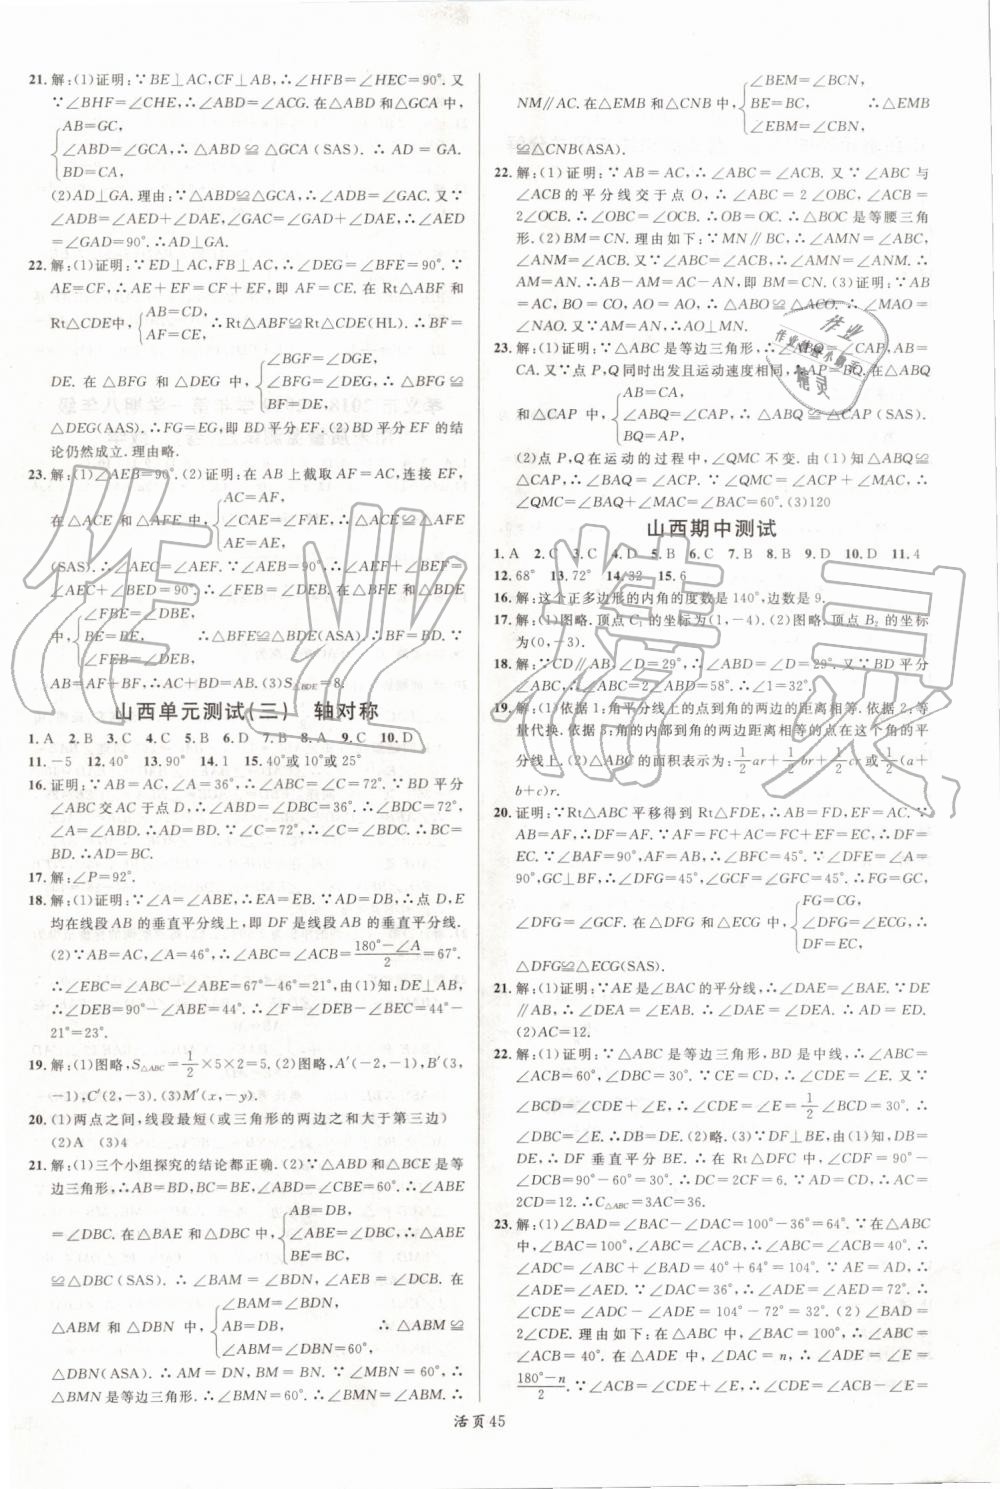 21. 解:(1)证明:∵BE⊥AC,CF⊥AB,∴∠HFB=∠HEC=90°. 又
∵∠BHF=∠CHE,∴∠ABD=∠ACG. 在△ABD和△GCA中,
AB=GC,
∠ABD=∠GCA,∴△ABD≌△GCA(SAS). ∴AD=GA.
BD=CA,
(2)AD⊥GA. 理由:∵△ABD≌△GCA,∴∠ADB=∠GAC. 又
∵∠ADB=∠AED+∠DAE,∠GAC=∠GAD+∠DAE,∴∠AED
=∠GAD=90°.∴AD⊥GA.
22. 解:(1)证明:∵ED⊥AC,FB⊥AC,∴∠DEG=∠BFE=90°. ∵
AE=CF,∴AE+EF=CF+EF,即AF=CE. 在Rt△ABF和
Rt△CDE中,
AB=CD,
AF=CE.
∴Rt△ABF≌Rt△CDE(HL). ∴BF=
DE. 在△BFG和△DEG中,
∠BGF=∠DGE,
∠DEG(AAS). ∴FG=EG,即BD平分EF. (2)BD平分EF的结
论仍然成立. 理由略.
23. 解:(1)∠AEB=90°. (2)证明:在AB上截取AF=AC,连接EF,
在△ACE和△AFE中,
AC=AF,
∠CAE=∠FAE,∴△ACE≌△AFE
AE=AE,
(SAS). ∴∠AEC=∠AEF. ∵∠AEB=90°,∴∠AEF+∠BEF=
∠AEC+∠BED=90°. ∴∠FEB=∠DEB. 在△BFE和△BDE
中,
∠FBE=∠DBE,
BE=BE,
∠FEB=∠DEB,
∴△BFE≌△BDE(ASA). ∴BF=BD. ∵
AB=AF+BF,∴AC+BD=AB. (3)S△BDE=8.
山西单元测试(三) 轴对称
1. A 2. B 3. C 4. C 5. B 6. D 7. B 8. A 9. C 10. D
11. -5 12. 40° 13. 90° 14. 1 15. 40°或10°或25°
16. 证明:∵AB=AC,∠A=36°,∴∠ABC=∠C=72°. ∵BD平分
∠ABC交AC于点D,∴∠ABD=∠DBC=36°,∠BDC=72°.
∠A=∠ABD. ∴AD=BD. ∵∠C=72°,∴∠C=∠BDC. ∴BC=
BD. ∴AD=BC.
17. 解:∠P=92°.
18. 解:(1)证明:∵∠A=∠ABE,∴EA=EB. ∵AD=DB,∴点D,E
均在线段AB的垂直平分线上,即DF是线段AB的垂直平分线.
(2)∵AB=AC,∠A=46°,∴∠ABC=∠ACB=180°-∠A/2=67°.
∴∠EBC=∠ABC-∠ABE=67°-46°=21°,由(1)知:DE⊥AB,
∴∠DEB=90°-∠ABE=44°. ∴∠F=∠DEB-∠EBC=44°-
21°=23°.
19. 解:(1)图略,S△ABC=1/2×5×2=5. (2)图略,A′(-2,-1),B′(3,
-1),C′(2,-3). (3)M′(x,-y).
20. (1)两点之间,线段最短(或三角形的两边之和大于第三边)
(2)A (3)4
21. 解:(1)三个小组探究的结论都正确. (2)∵△ABD和△BCE是等
边三角形,∴AB=BD,BC=BE,∠ABD=∠CBE=60°. ∴∠ABE
=∠DBC. 在△BAE和△BDC中,
AB=DB,
∠ABE=∠DBC,∴△ABE
BE=BC.
≌△DBC(SAS). ∴∠BAM=∠BDN,∠AEB=∠DCB. 在
△ABM和△DBN中,
∠BAM=∠BDN,
AB=DB,
∠ABM=∠DBN=60°,
∴△ABM≌
△DBN(ASA). ∴AM=DN,BM=BN. ∵∠MBN=60°,∴
△BMN是等边三角形. ∴∠BMN=60°. ∴∠BMN=∠ABM. ∴
NM∥AC. 在△EMB和△CNB中,
∠BEM=∠BCN,
BE=BC,
∠EBM=∠CBN,
∴△EMB
≌△CNB(ASA).
22. 解:(1)证明:∵AB=AC,∴∠ABC=∠ACB. 又∵∠ABC与
∠ACB的平分线交于点O,∴∠ABC=2∠OBC,∠ACB=
2∠OCB. ∴∠OBC=∠OCB. ∴OB=OC. ∴△BOC是等腰三角
形. (2)BM=CN. 理由如下:∵MN∥BC,∴∠AMN=∠ABC,
∠ANM=∠ACB. 又∵∠ABC=∠ACB,∴∠AMN=∠ANM. ∴
AM=AN. ∴AB-AM=AC-AN,即BM=CN. (3)证明:∵AB
=AC,BO=CO,AO=AO,∴△ABO≌△ACO. ∴∠MAO=
∠NAO. 又∵AM=AN,∴AO⊥MN.
23. 解:(1)证明:∵△ABC是等边三角形,∴∠ABQ=∠CAP,AB=
CA. ∵点P,Q同时出发且运动速度相同,∴AP=BQ. 在△ABQ
和△CAP中,
AB=CA,
∠ABQ=∠CAP,∴△ABQ≌△CAP(SAS).
BQ=AP,
(2)点P,Q在运动的过程中,∠QMC不变. 由(1)知△ABQ≌
△CAP,∴∠BAQ=∠ACP. ∵∠QMC=∠ACP+∠MAC,∴
∠QMC=∠BAQ+∠MAC=∠BAC=60°. (3)120
山西期中测试
1. A 2. C 3. C 4. D 5. B 6. C 7. B 8. B 9. D 10. D 11. 4
12. 68° 13. 72° 14. 32 15. 6
16. 解:这个正多边形的内角的度数是140°,边数是9.
17. 解:(1)图略. 顶点C₁的坐标为(1,-4). (2)图略. 顶点B₂的坐标
为(0,-3).
18. 解:∵CD∥AB,∠D=29°,∴∠ABD=∠D=29°. 又∵BD平分
∠ABC,∴∠ABC=2∠ABD=58°. ∴∠1=32°.
19. 解:(1)依据1:角平分线上的点到角的两边的距离相等. 依据2:等
量代换. 依据3:角的内部到角的两边距离相等的点在这个角的平
分线上. (2)△ABC的面积表示为:1/2ar+1/2br+1/2cr或1/2(a+
b+c)r.
20. 证明:∵Rt△ABC平移得到Rt△FDE,∴AB=FD,EF=AC. ∵
AB=AF,∴DF=AF. ∵AF+FC=AC=FC+EF=EC,∴DF=
EC. ∵∠BAF=90°,AF=AB,∴∠BFC=45°. ∵∠DFE=∠A=
90°,GC⊥BF,∴∠DFG=45°,∠GCF=∠GFC=45°. ∴FG=GC,
∠DFG=∠GCF. 在△DFG和△ECG中,
FG=CG,
∠DFG=∠ECG,∴
DF=EC,
△DFG≌△ECG(SAS).
21. 解:(1)证明:∵AE是∠BAC的平分线,∴∠DAE=∠BAE. ∵DE
∥AB,∴∠DEA=∠EAB. ∴∠DEA=∠DAE. ∴AD=ED.
(2)AC=12.
22. 解:(1)证明:∵△ABC是等边三角形,BD是中线,∴∠ABC=
∠ACB=60°,∠DBC=30°. ∵CE=CD,∴∠CDE=∠E. 又∵
∠BCD=∠CDE+∠E,∴∠CDE=∠E=1/2∠BCD=30°. ∴
∠DBC=∠E. ∴DB=DE. (2)略. (3)∵DF⊥BE,由(1)知,DB=
DE,∴DF垂直平分BE. ∴在Rt△DFC中,∠FDC=90°-
∠DCF=30°. ∵CF=3,∴DC=2CF=6. ∵AD=CD,∴AC=
2CD=12. ∴C△ABC=3AC=36.
23. 解:(1)∠BAD=∠BAC-∠DAC=100°-36°=64°. ∵在△ABC
中,∠BAC=100°,∠ABC=∠ACB,∴∠ABC=∠ACB=40°. ∴
∠ADC=∠ABC+∠BAD=40°+64°=104°. ∵AE=AD,∴
∠ADE=∠AED. ∵∠DAC=36°,∴∠ADE=∠AED=72°. ∴
∠CDE=∠ADC-∠ADE=104°-72°=32°. (2)∠BAD=
2∠CDE. 理由如下:在△ABC中,∵∠BAC=100°,∴∠ABC=
∠ACB=40°. 在△ADE中,∠DAC=n,∴∠ADE=∠AED=
180°-n/2. ∵∠ACB=∠CDE+∠AED,∴∠CDE=∠ACB-∠AED=
活页45
作业
精灵
作业精灵